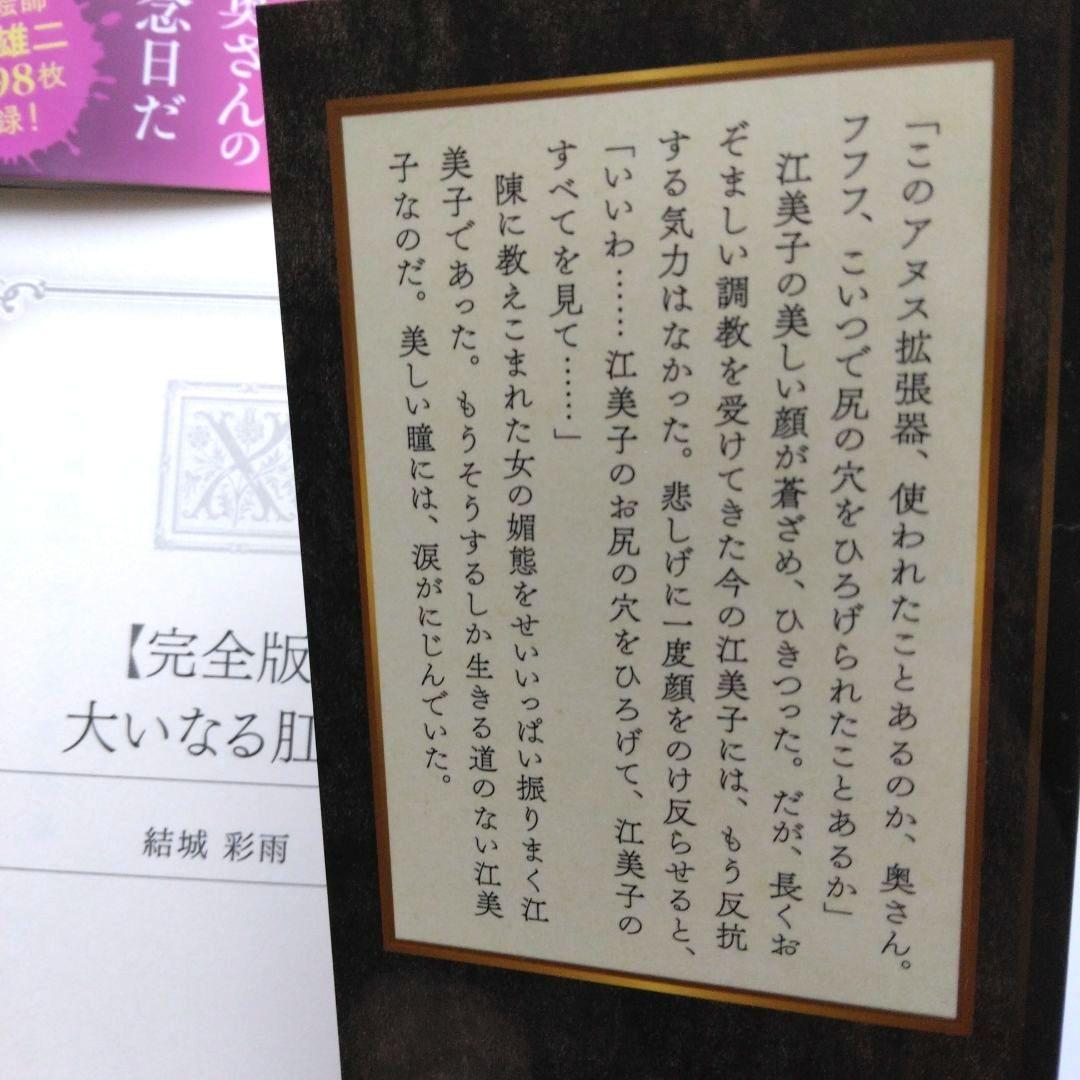 「このアヌス拡張器、使われたことあるのか、奥さん。
フフフ、こいつで尻の穴をひろげられたことあるか」
江美子の美しい顔が蒼ざめ、ひきつった。だが、長くお
ぞましい調教を受けてきた今の江美子には、もう反抗
する気力はなかった。悲しげに一度顔をのけ反らせると、
「いいわ……江美子のお尻の穴をひろげて、江美子の
すべてを見て……」
陳に教えこまれた女の媚態をせいいっぱい振りまく江
美子であった。もうそうするしか生きる道のない江美
子なのだ。美しい瞳には、涙がにじんでいた。
奥さんの
念日だ
絵師
雄二
98枚
録!
X
【完全版
大いなる肛
結城 彩雨